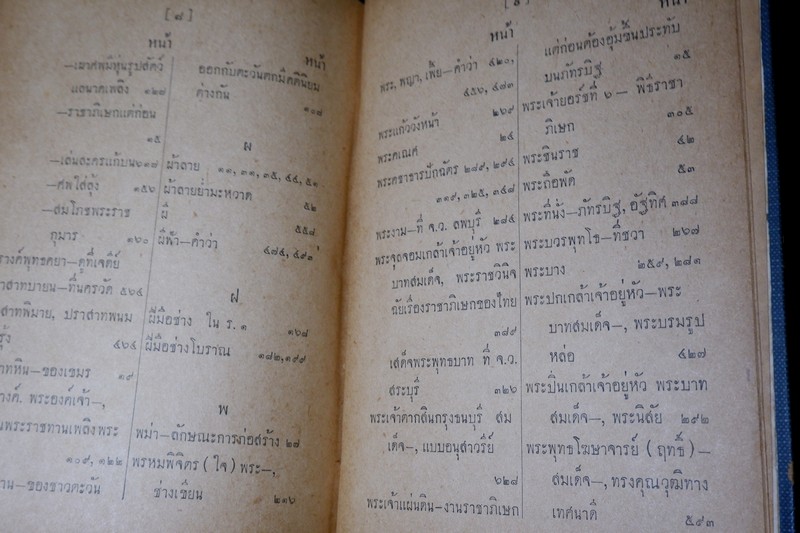 [ ๘ ]
หน้า
—เผาศพมีหุ่นรูปสัตว์
และนาคเพลิง ๑๒๘
—ราชาภิเษกแต่ก่อน
๑๕
—เล่นละครแก้บน ๖๑๘
—ศพใส่ลุ้ง ๑๕๖
—สมโภชพระราช
กุมาร ๑๖๐
รางค์พุทธคยา—ดูที่เจดีย์
าสาทบายน—ที่นครวัด ๕๖๔
สาทพิมาย, ปราสาทพนม
รุ้ง ๕๖๔
าทหิน—ของเขมร ๑๙
างค์. พระองค์เจ้า—,
นพระราชทานเพลิงพระ
๑๐๙, ๑๒๒
าน—ของชาวตะวัน
หน้า
ออกกับตะวันตกมีคตินิยม
ต่างกัน ๑๐๘
ผ
ผ้าลาย ๑๑, ๓๑, ๓๕, ๔๔, ๕๑
ผ้าลายย่ามะหวาด ๕๒
ผี ๕๕๘
ผีฟ้า—คำว่า ๔๘๔, ๔๙๓
ฝ
ฝีมือช่าง ใน ร. ๑ ๑๖๘
ฝีมือช่างโบราณ ๑๘๒, ๑๙๙
พ
พม่า—ลักษณะการก่อสร้าง ๒๗
พรหมพิจิตร ( ใจ ) พระ—,
ช่างเขียน ๒๑๖
[ ๙ ]
หน้า
พระ, พญา, เพีย—คำว่า ๔๒๐,
๔๕๖, ๔๘๓
พระแก้ววังหน้า ๒๖๙
พระคเณศ ๒๔
พระคชาธารปักฉัตร ๒๘๙, ๒๙๔
๓๑๙, ๓๒๕, ๓๔๘
พระงาม—ที่ จ.ว. ลพบุรี ๒๘๔
พระจุลจอมเกล้าเจ้าอยู่หัว พระ
บาทสมเด็จ, พระราชวินิจ
ฉัยเรื่องราชาภิเษกของไทย
๓๘๙
เสด็จพระพุทธบาท ที่ จ.ว.
สระบุรี ๓๒๖
พระเจ้าตากสินกรุงธนบุรี สม
เด็จ—, แบบอนุสาวรีย์
๖๒๘
พระเจ้าแผ่นดิน—งานราชาภิเษก
หน้า
แต่ก่อนต้องอุ้มขึ้นประทับ
บนภัทรบิฐ ๑๕
พระเจ้ายอร์ชที่ ๖— พิธีราชา
ภิเษก ๓๐๕
พระชินราช ๔๒
พระถือพัด ๕๓
พระที่นั่ง—ภัทรบิฐ, อัฐทิศ ๓๘๘
พระบวรพุทโธ—ที่ชวา ๒๖๗
พระบาง ๒๕๙, ๒๘๓
พระปกเกล้าเจ้าอยู่หัว—พระ
บาทสมเด็จ—, พระบรมรูป
หล่อ ๔๒๗
พระปิ่นเกล้าเจ้าอยู่หัว พระบาท
สมเด็จ—, พระนิสัย ๒๙๒
พระพุทธโฆษาจารย์ ( ฤทธิ์ )—
สมเด็จ—, ทรงคุณวุฒิทาง
เทศนาดี ๕๙๓